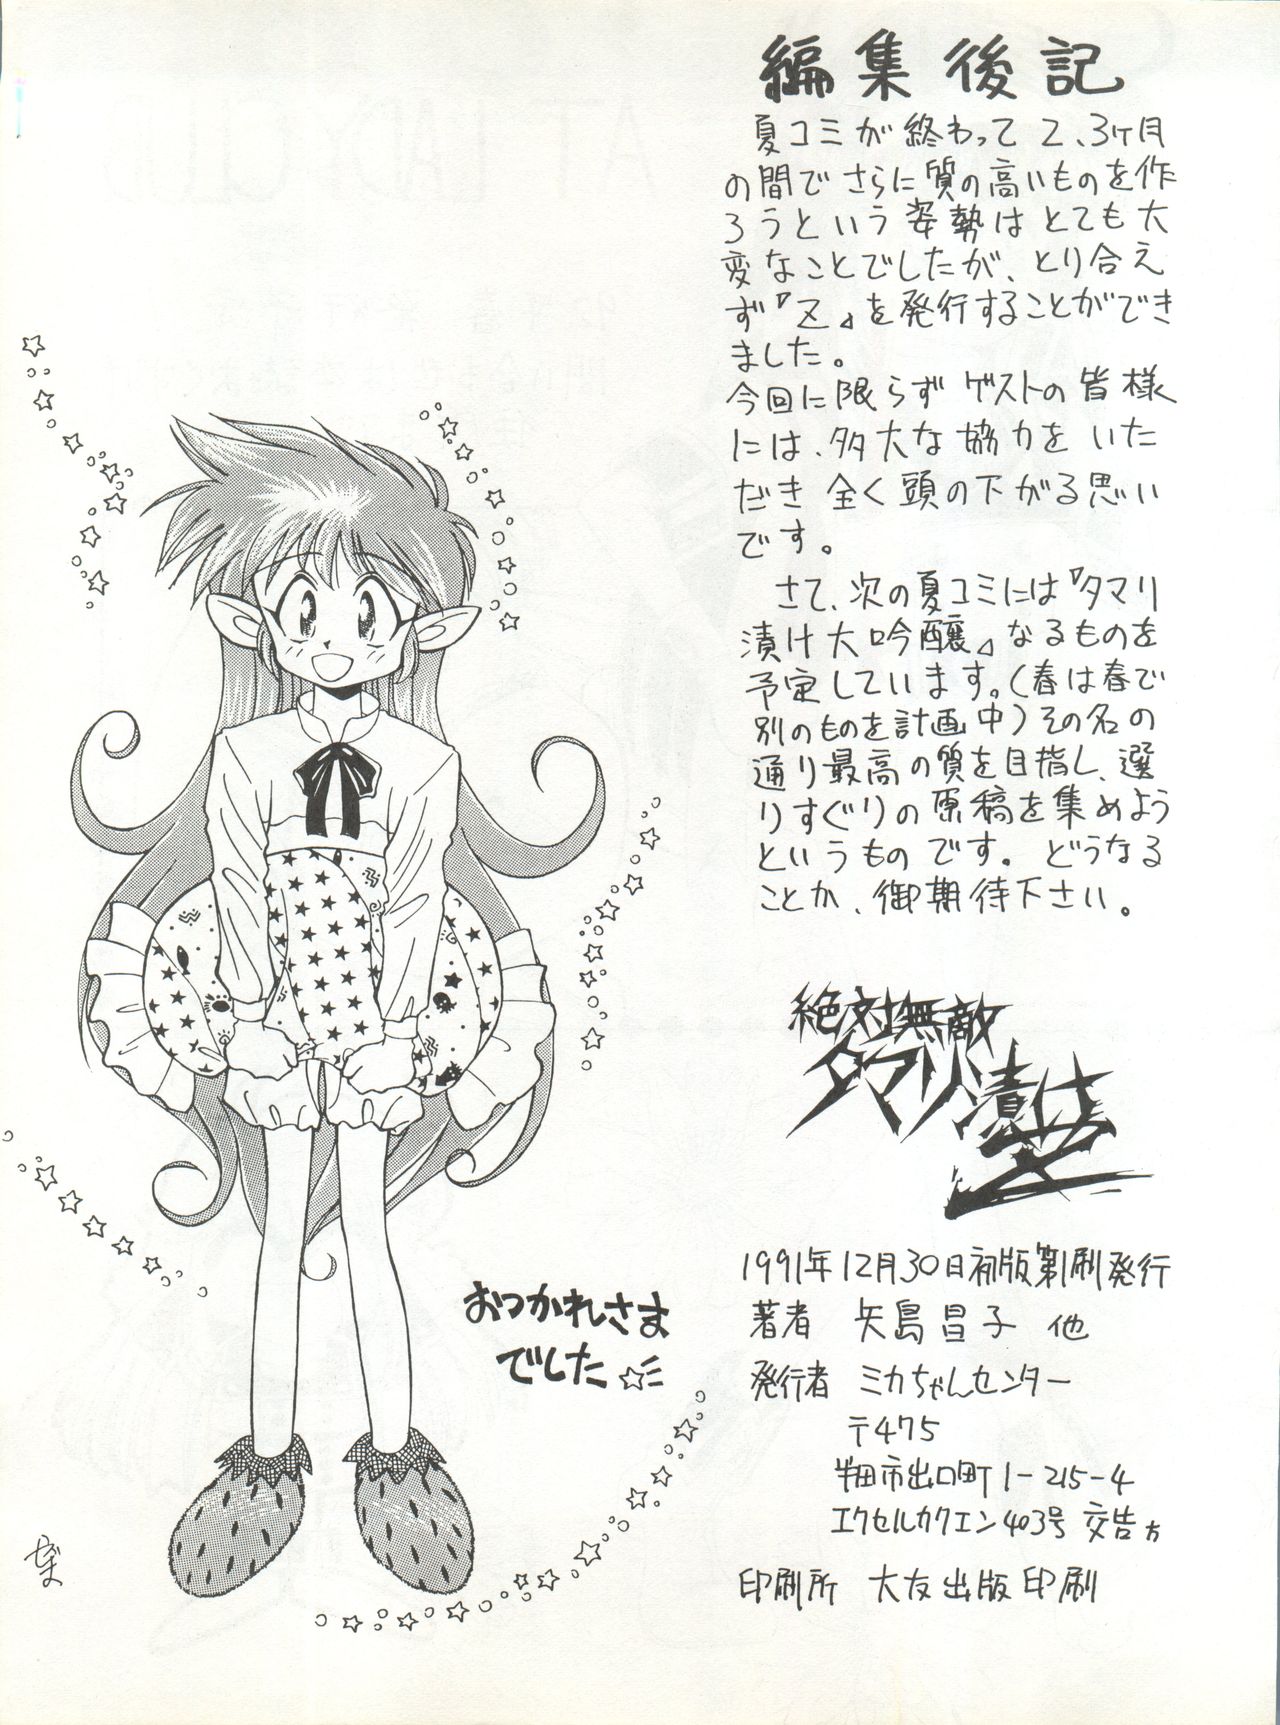 編集後記
夏コミが終わって2、3ヶ月
の間でさらに質の高いものを作
ろうという姿勢はとても大
変なことでしたが、とり合え
ず『Z』を発行することができ
ました。
今回に限らずゲストの皆様
には、多大な協力をいた
だき全く頭の下がる思い
です。
さて、次の夏コミには『タマリ
漬け大吟醸』なるものを
予定しています。(春は春で
別のものを計画中)その名の
通り最高の質を目指し、選
りすぐりの原稿を集めよう
というものです。どうなる
ことか、御期待下さい。
絶対無敵
タマリ漬け
Z
1991年12月30日初版第1刷発行
著者 矢島昌子 他
発行者 ミカちゃんセンター
〒475
半田市出口町1-215-4
エクセルカクエン403号 交告方
印刷所 大友出版印刷
おつかれさま
でした☆